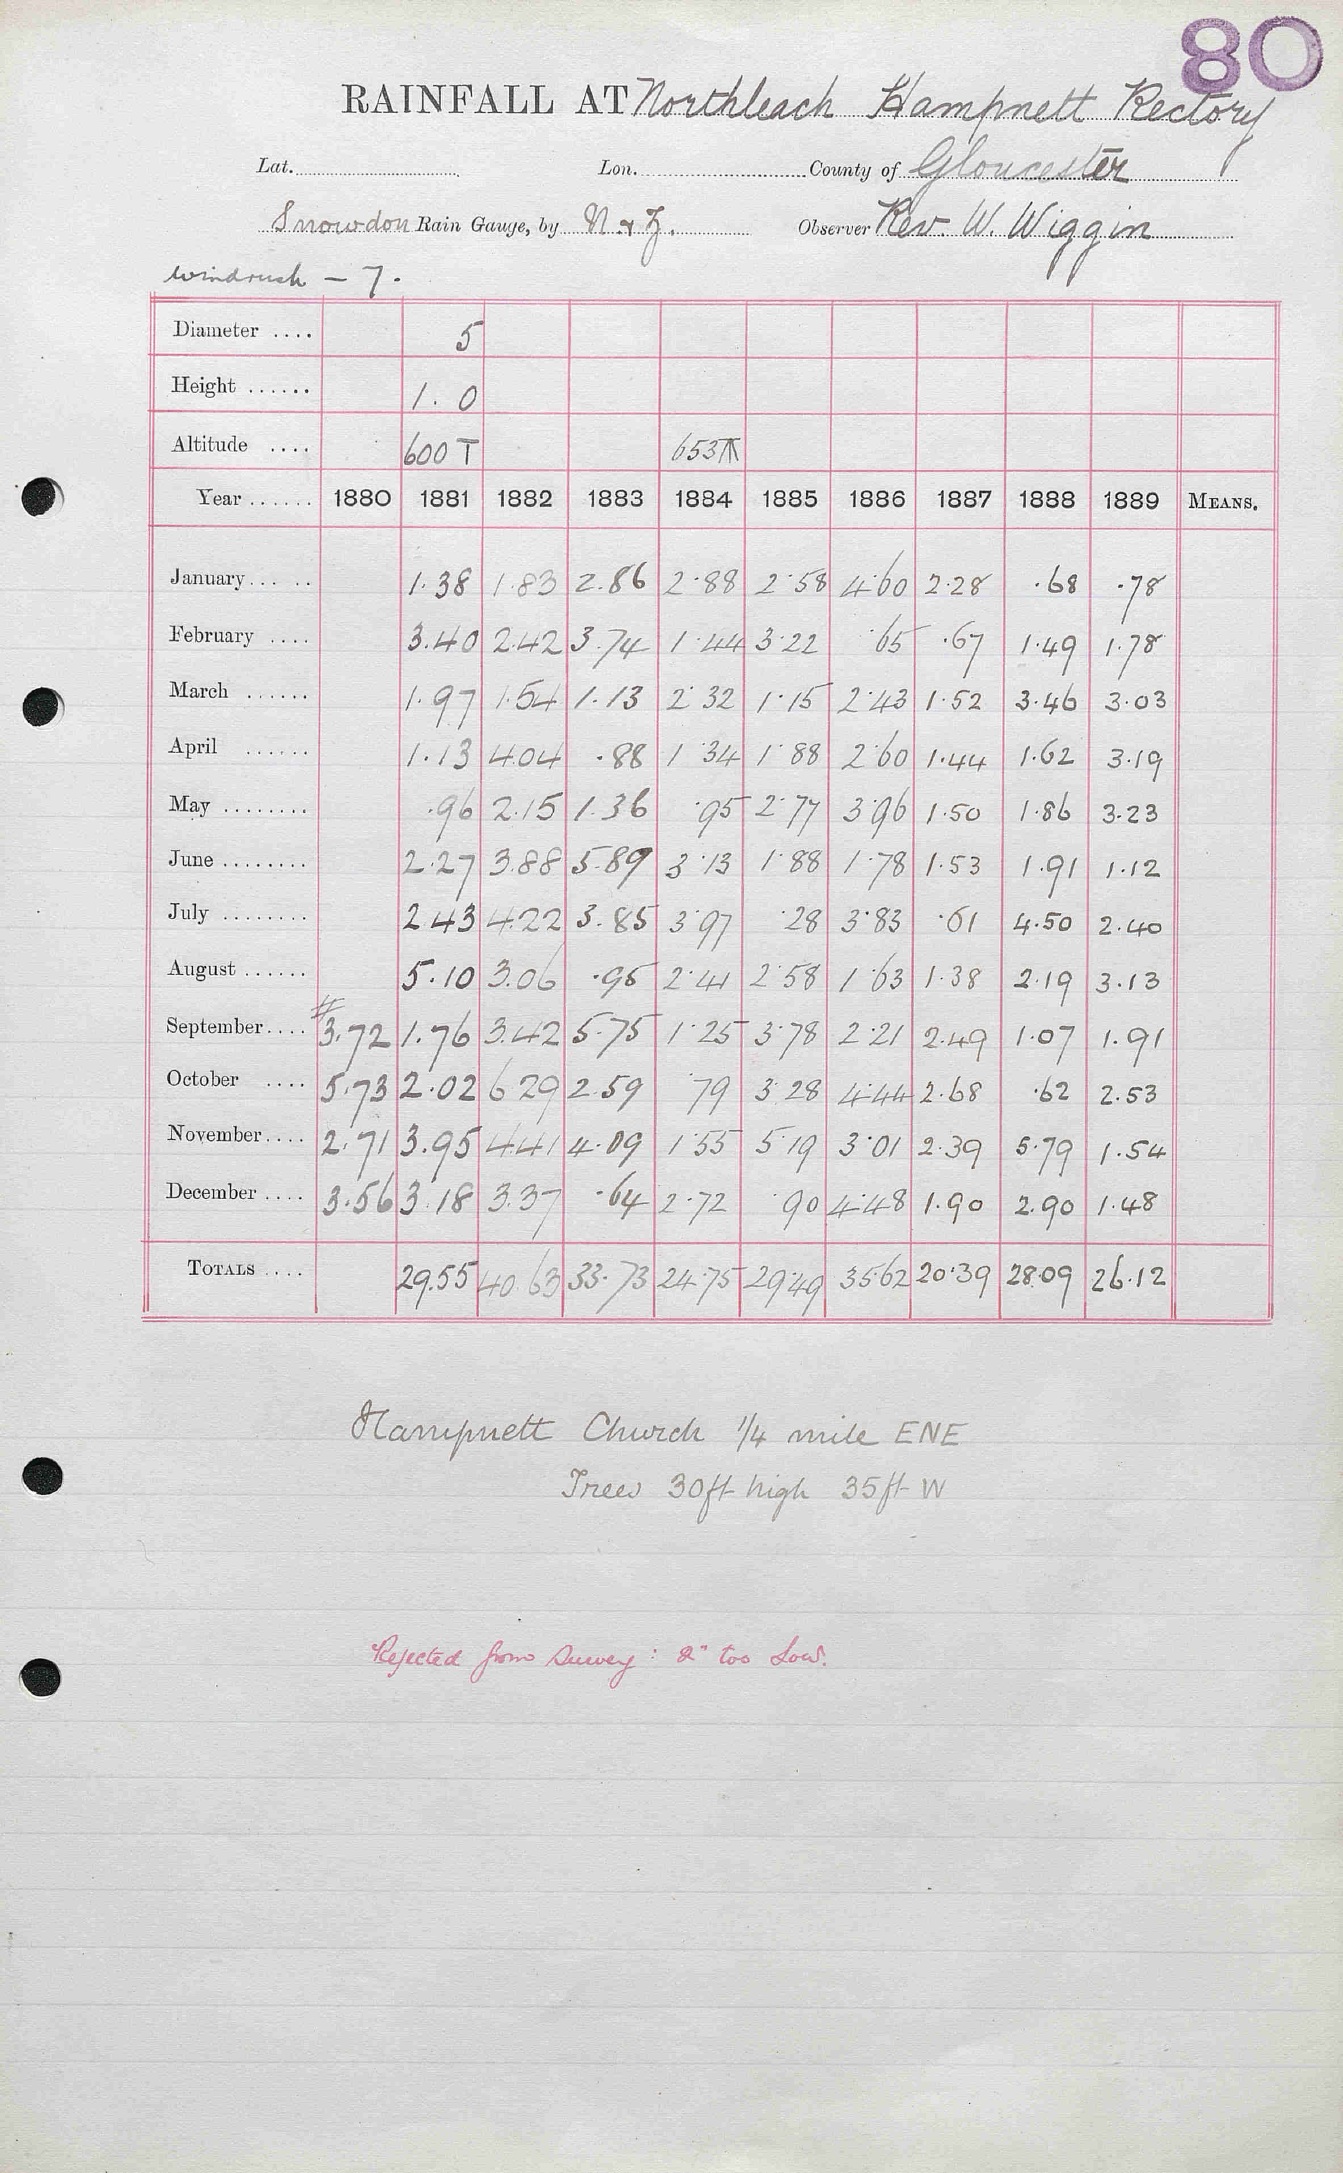 80
RAINFALL AT Northleach Hampnett Rectory
Lat. Lon. County of Gloucester
Snowdon Rain Gauge, by N & Z. Observer Rev. W. Wiggin
Windrush – 7.
Diameter .... 5
Height ...... 1. 0
Altitude .... 600 T 653
Year ...... 1880 1881 1882 1883 1884 1885 1886 1887 1888 1889 MEANS.
January... .. 1.38 1.83 2.86 2.88 2.58 4.60 2.28 .68 .78
February .... 3.40 2.42 3.74 1.44 3.22 .65 .67 1.49 1.78
March ...... 1.97 1.54 1.13 2.32 1.15 2.43 1.52 3.46 3.03
April ...... 1.13 4.04 .88 1.34 1.88 2.60 1.44 1.62 3.19
May ........ .96 2.15 1.36 .95 2.77 3.96 1.50 1.86 3.23
June ........ 2.27 3.88 5.89 3.13 1.88 1.78 1.53 1.91 1.12
July ........ 2.43 4.22 3.85 3.97 .28 3.83 .61 4.50 2.40
August ...... 5.10 3.06 .95 2.41 2.58 1.63 1.38 2.19 3.13
#
September.... 3.72 1.76 3.42 5.75 1.25 3.78 2.21 2.49 1.07 1.91
October .... 5.73 2.02 6 29 2.59 .79 3.28 4.44 2.68 .62 2.53
November.... 2.71 3.95 4.41 4.09 1.55 5.19 3.01 2.39 5.79 1.54
December .... 3.56 3.18 3.37 .64 2.72 .90 4.48 1.90 2.90 1.48
TOTALS .... 29.55 40.63 33.73 24.75 29.49 35.62 20.39 28.09 26.12
Hampnett Church 1/4 mile ENE
Trees 30ft high 35ft W
Rejected from Survey : 2" too Low.